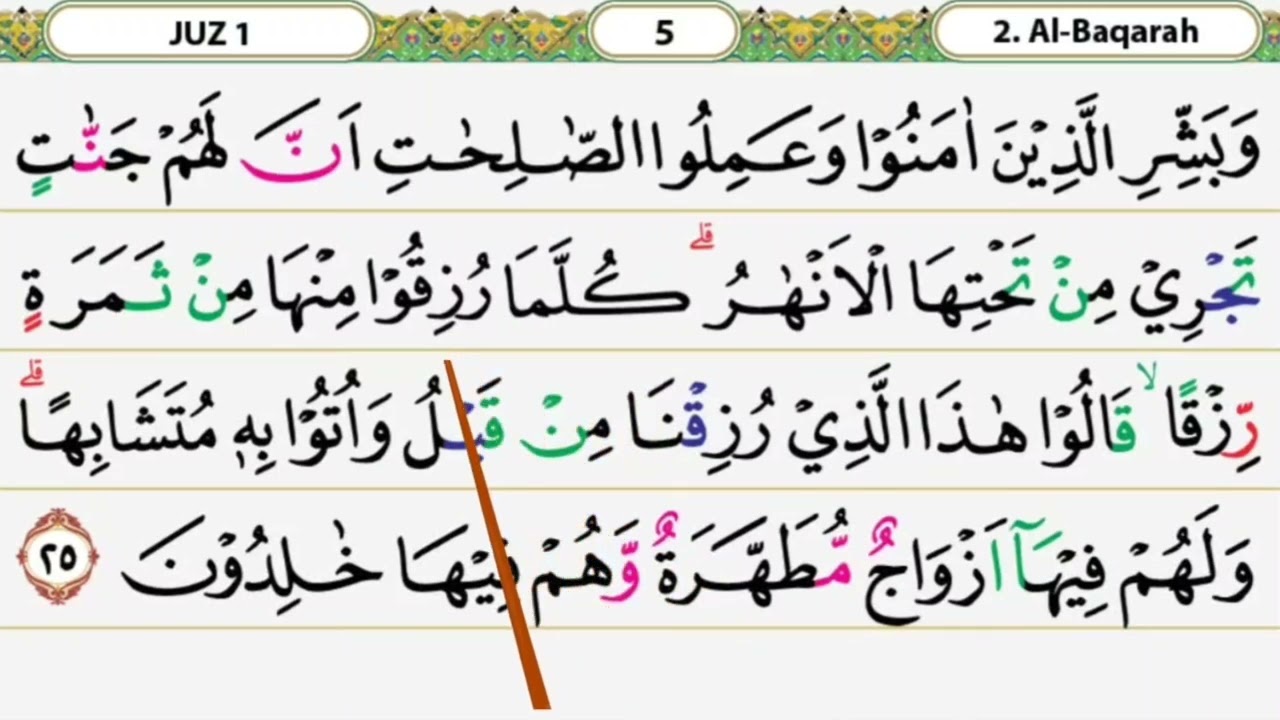 JUZ 1
5
2. Al-Baqarah
وَبَشِّرِ الَّذِيْنَ اٰمَنُوْا وَعَمِلُوا الصّٰلِحٰتِ اَنَّ لَهُمْ جَنّٰتٍ
تَجْرِيْ مِنْ تَحْتِهَا الْاَنْهٰرُ ۗ كُلَّمَا رُزِقُوْا مِنْهَا مِنْ ثَمَرَةٍ
رِّزْقًا ۙ قَالُوْا هٰذَا الَّذِيْ رُزِقْنَا مِنْ قَبْلُ وَاُتُوْا بِهٖ مُتَشَابِهًا ۗ
وَلَهُمْ فِيْهَآ اَزْوَاجٌ مُّطَهَّرَةٌ وَّهُمْ فِيْهَا خٰلِدُوْنَ ٢٥